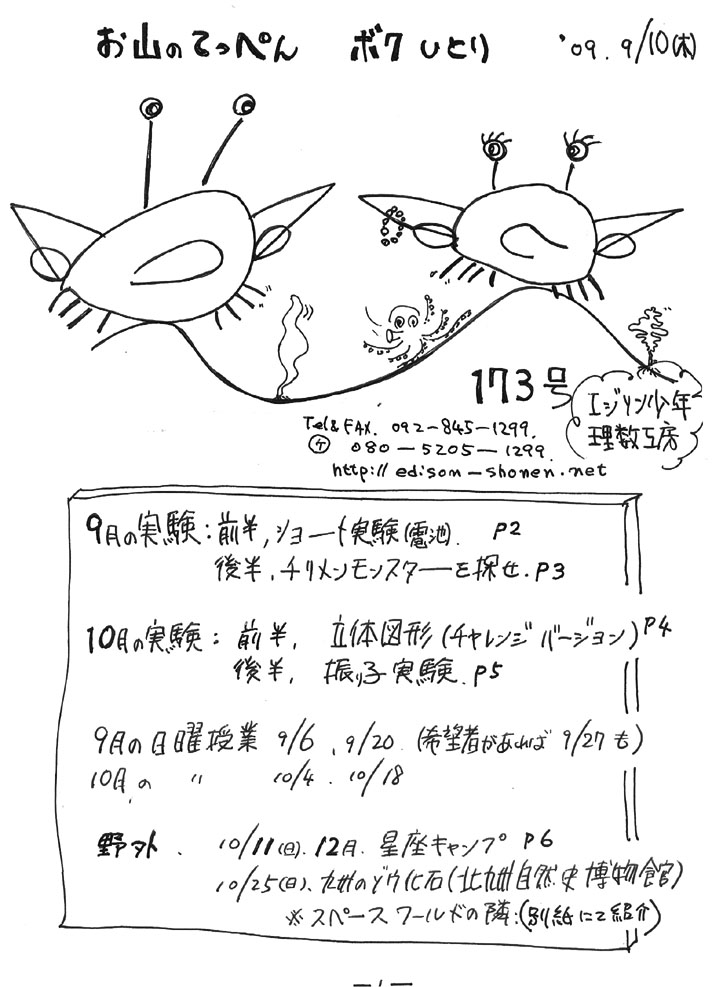 お山のてっぺん ボク ひとり '09. 9/10(木)
173号
エジソン少年
理数工房
Tel&FAX. 092-845-1299.
ケ 080-5205-1299.
http://edison-shonen.net
9月の実験:前半,ショート実験(電池). P2
後半,チリメンモンスターを探せ.P3
10月の実験: 前半, 立体図形(チャレンジバージョン)P4
後半, 振り子実験.P5
9月の日曜授業 9/6 、9/20. (希望者があれば 9/27も)
10月の 〃 10/4. 10/18
野外 、 10/11(日).12月. 星座キャンプ P6
10/25(日)、九州のゾウ化石(北九州自然史博物館)
※スペースワールドの隣:(別紙にて紹介)
-1-